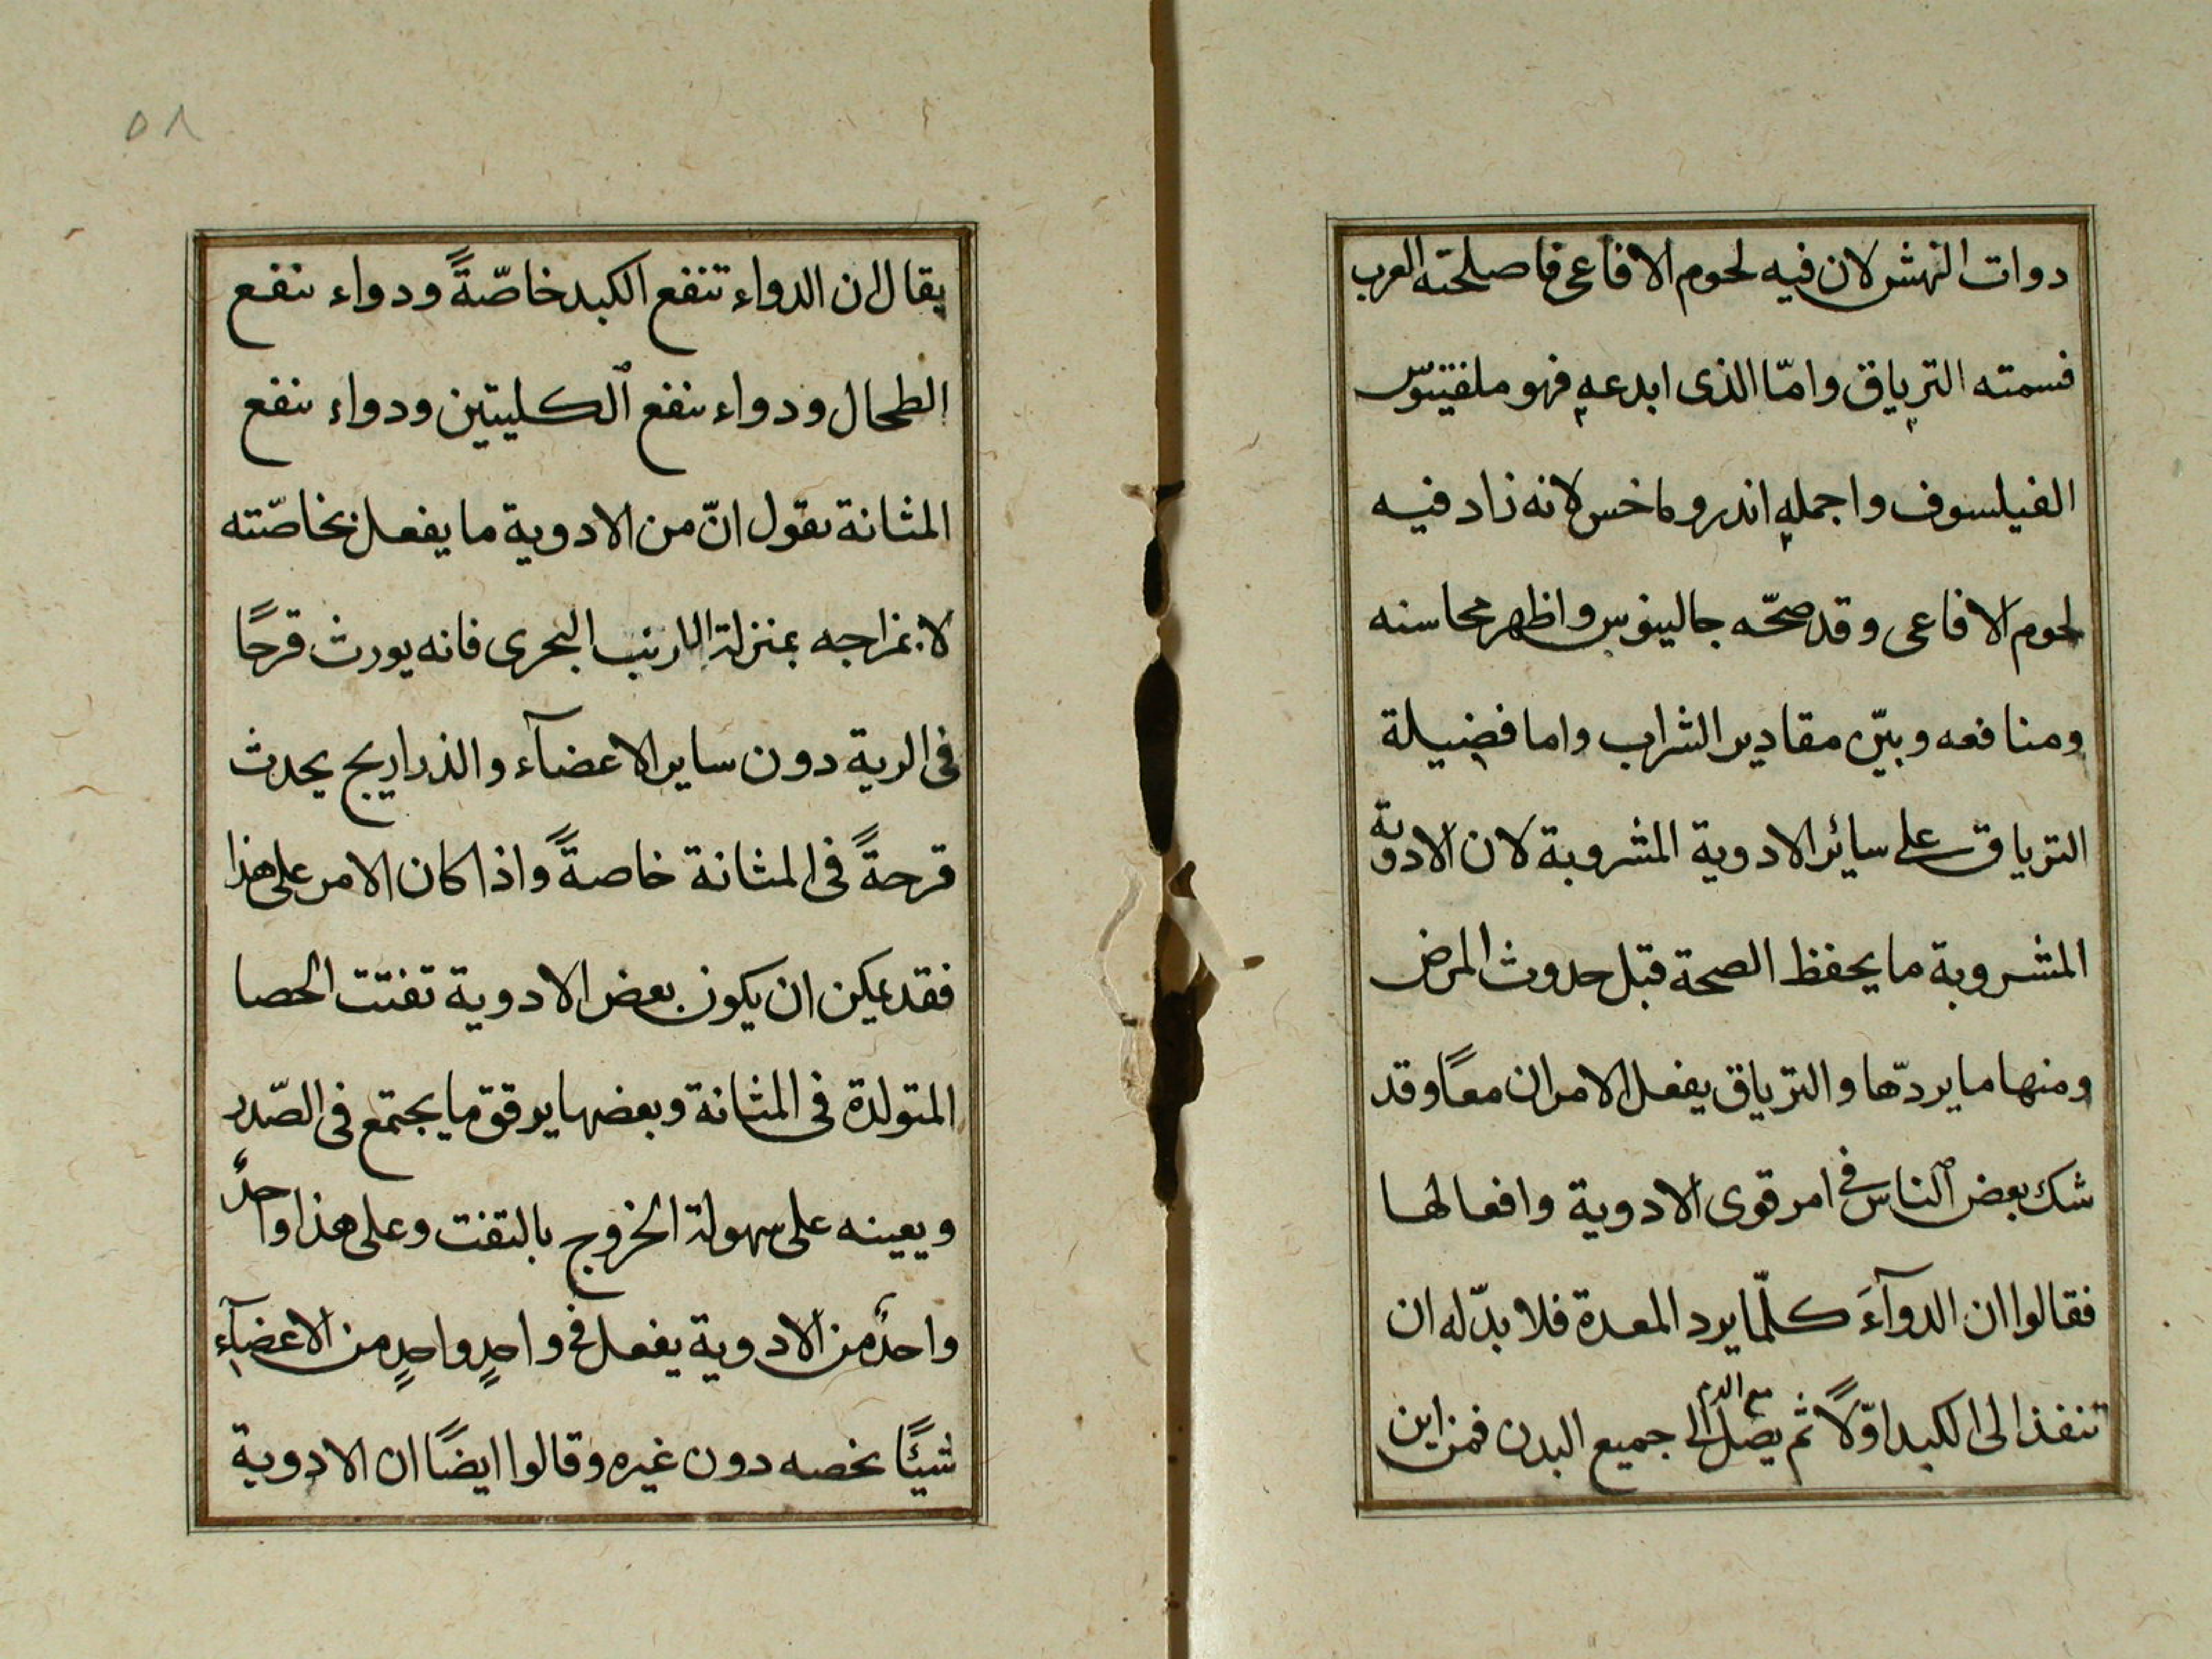 دوات النهش لان فيه لحوم الافاعى فاصلحته العرب
فسمته الترياق وامّا الذى ابدعه فهو ملفينوس
الفيلسوف واجمله اندروماخس لانه زاد فيه
لحوم الافاعى وقد صحّحه جالينوس واظهر محاسنه
ومنافعه وبيّن مقادير الشراب واما فضيلة
الترياق على سائر الادوية المشروبة لان الادوية
المشروبة ما يحفظ الصحة قبل حدوث المرض
ومنها ما يردّها والترياق يفعل الامران معًا وقد
شك بعض الناس فى امر قوى الادوية وافعالها
فقالوا ان الدوآءَ كلّما يرد المعدة فلا بدّ له ان
تنفذ الى الكبد اوّلاً ثم يصل مع الدم الى جميع البدن فمن اين
٥٨
يقال ان الدواء تنفع الكبد خاصّةً ودواء ينفع
الطحال ودواء ينفع الكليتين ودواء ينفع
المثانة نقول انّ من الادوية ما يفعل بخاصّته
لا بمزاجه بمنزلة الارنب البحرى فانه يورث قرحًا
فى الرية دون ساير الاعضآء والذراريح يحدث
قرحةً فى المثانة خاصةً واذا كان الامر على هذا
فقد يمكن ان يكون بعض الادوية تفتت الحصا
المتولدة فى المثانة وبعضها يرقق ما يجتمع فى الصّدر
ويعينه على سهولة الخروج بالتفت وعلى هذا واحدٌ
واحدٌ من الادوية يفعل فى واحدٍ واحدٍ من الاعضآء
شيئًا يخصه دون غيره وقالوا ايضًا ان الادوية